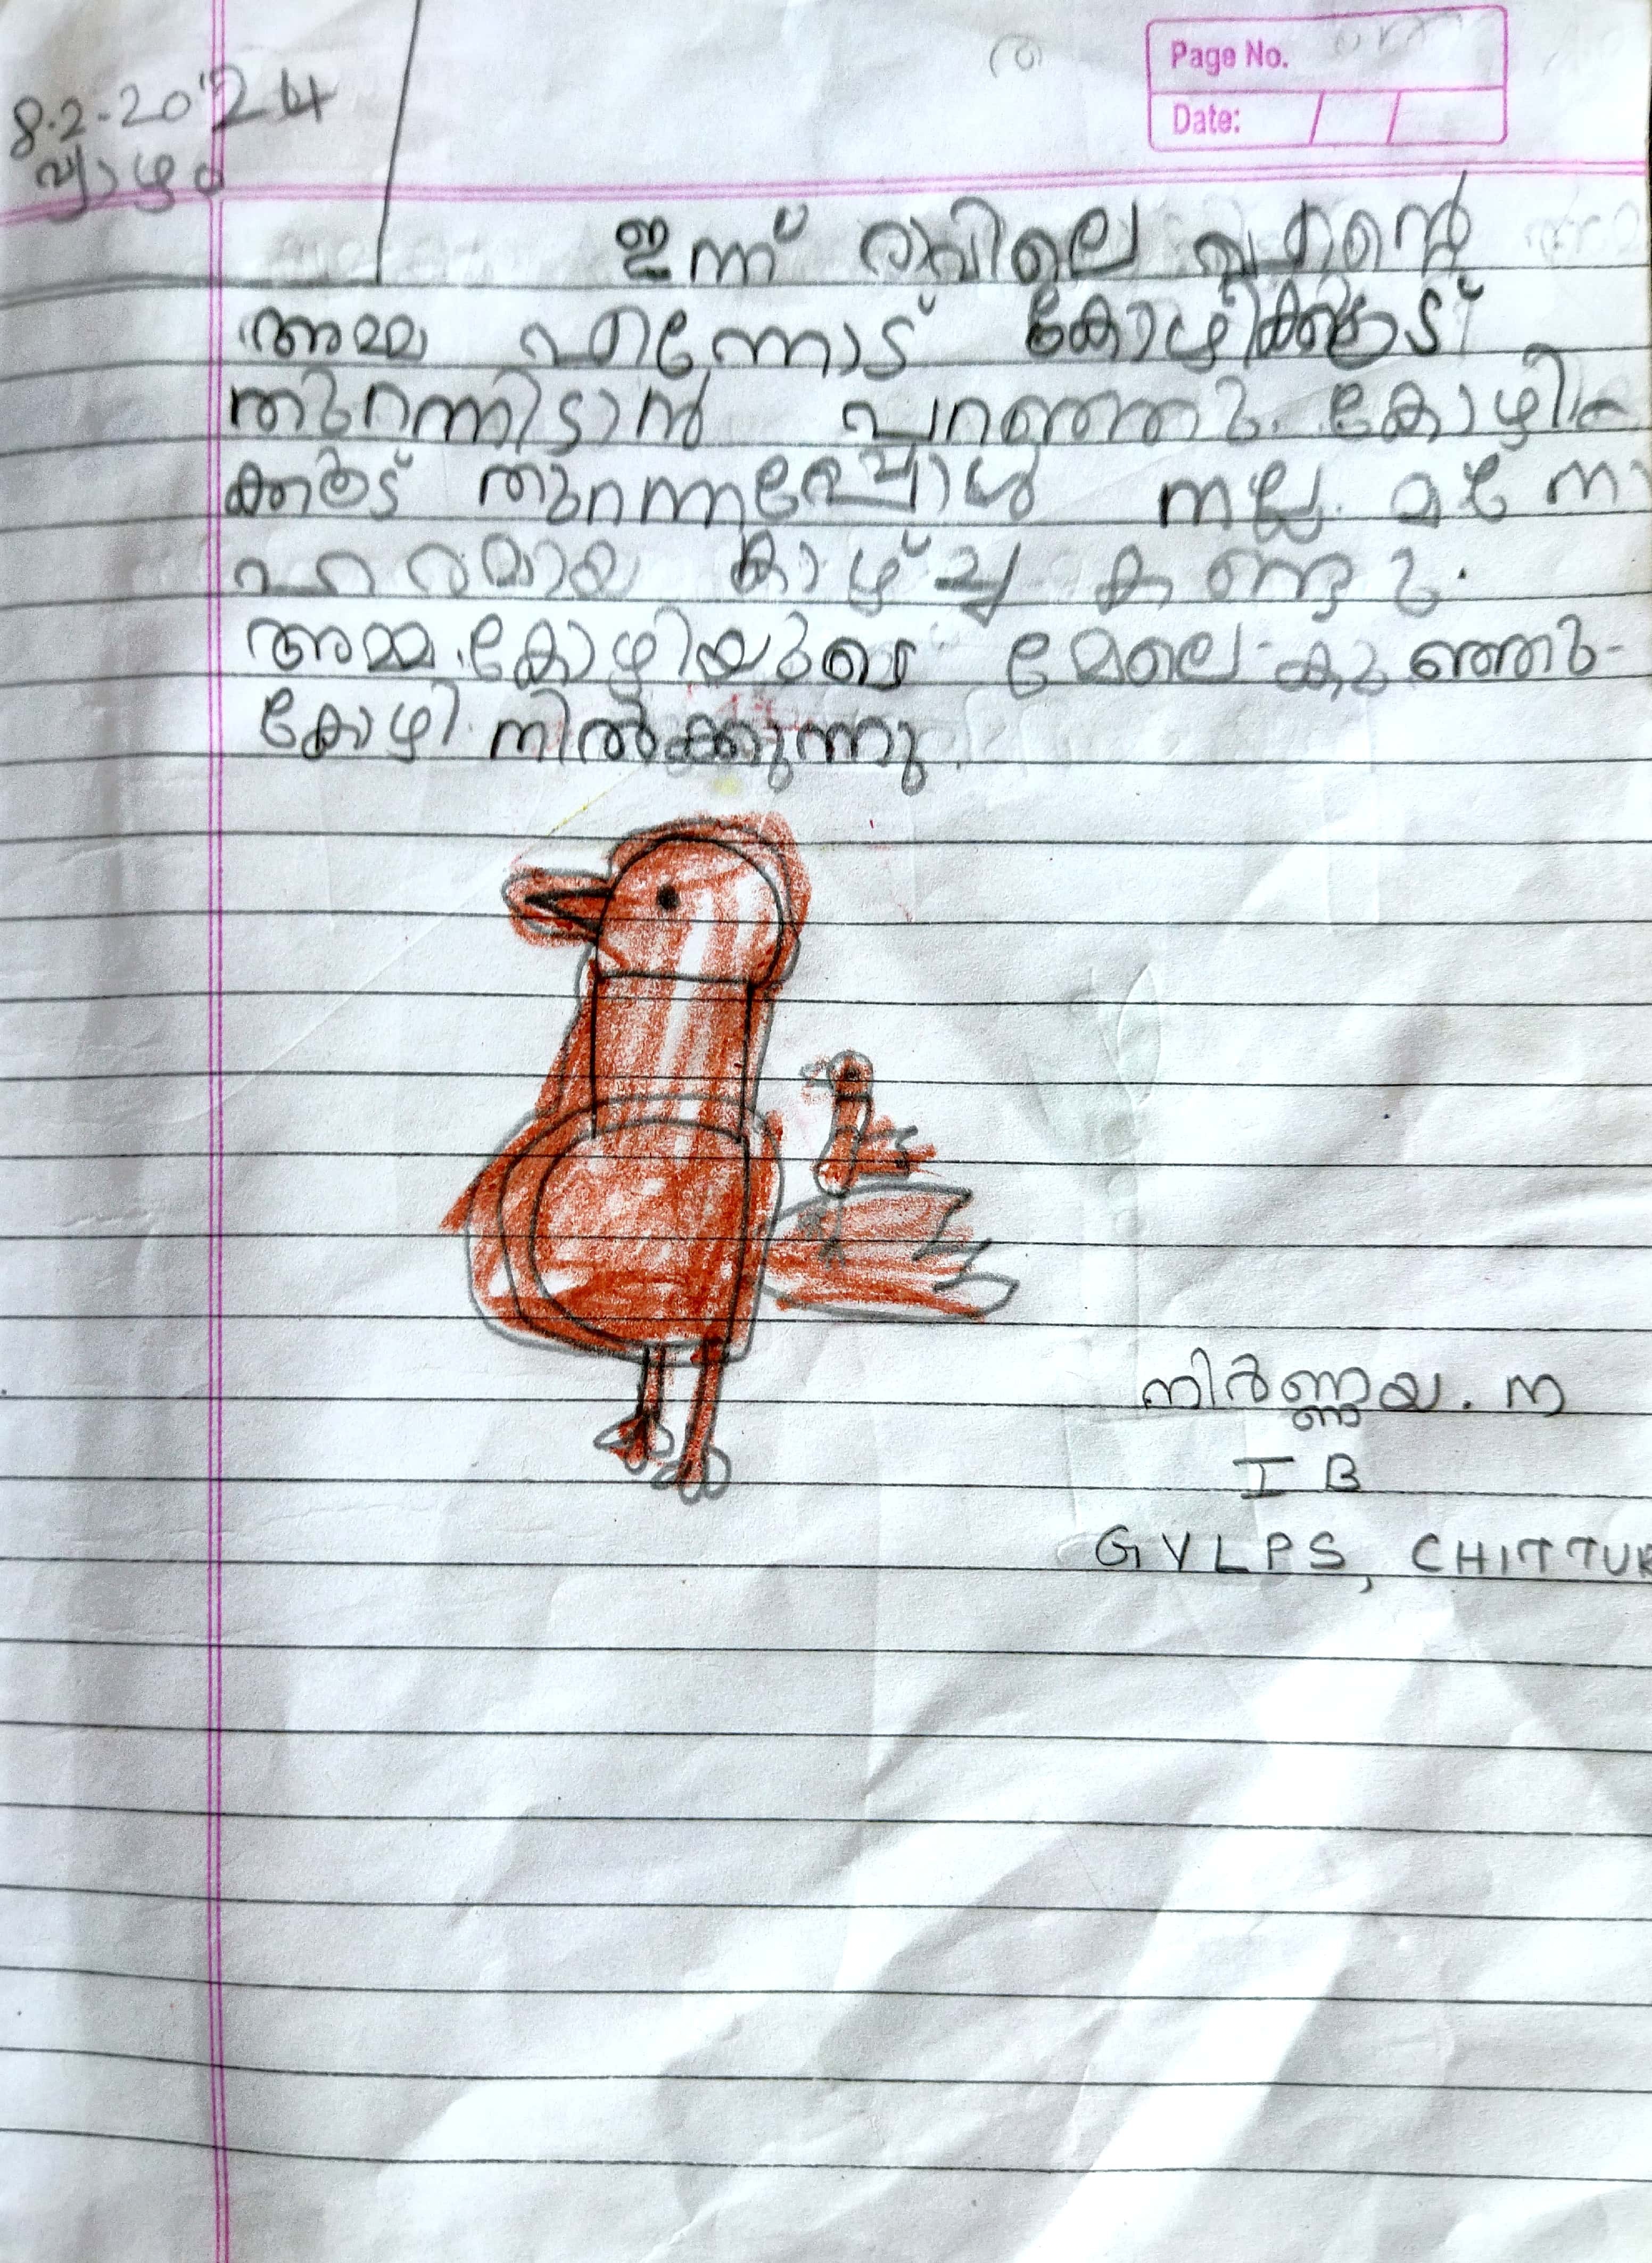 Page No.
Date:
8.2.2024
വ്യാഴം
ഇന്ന് രാവിലെ എൻ്റെ
അമ്മ എന്നോട് കോഴിക്കൂട്
തുറന്നിടാൻ പറഞ്ഞു. കോഴി
ക്കൂട് തുറന്നപ്പോൾ നല്ല മനോ
ഹരമായ കാഴ്ച്ച കണ്ടു.
അമ്മ കോഴിയുടെ മേലെ കുഞ്ഞു-
കോഴി നിൽക്കുന്നു.
നിർണ്ണയ. ന
I B
GVLPS, CHITTUR